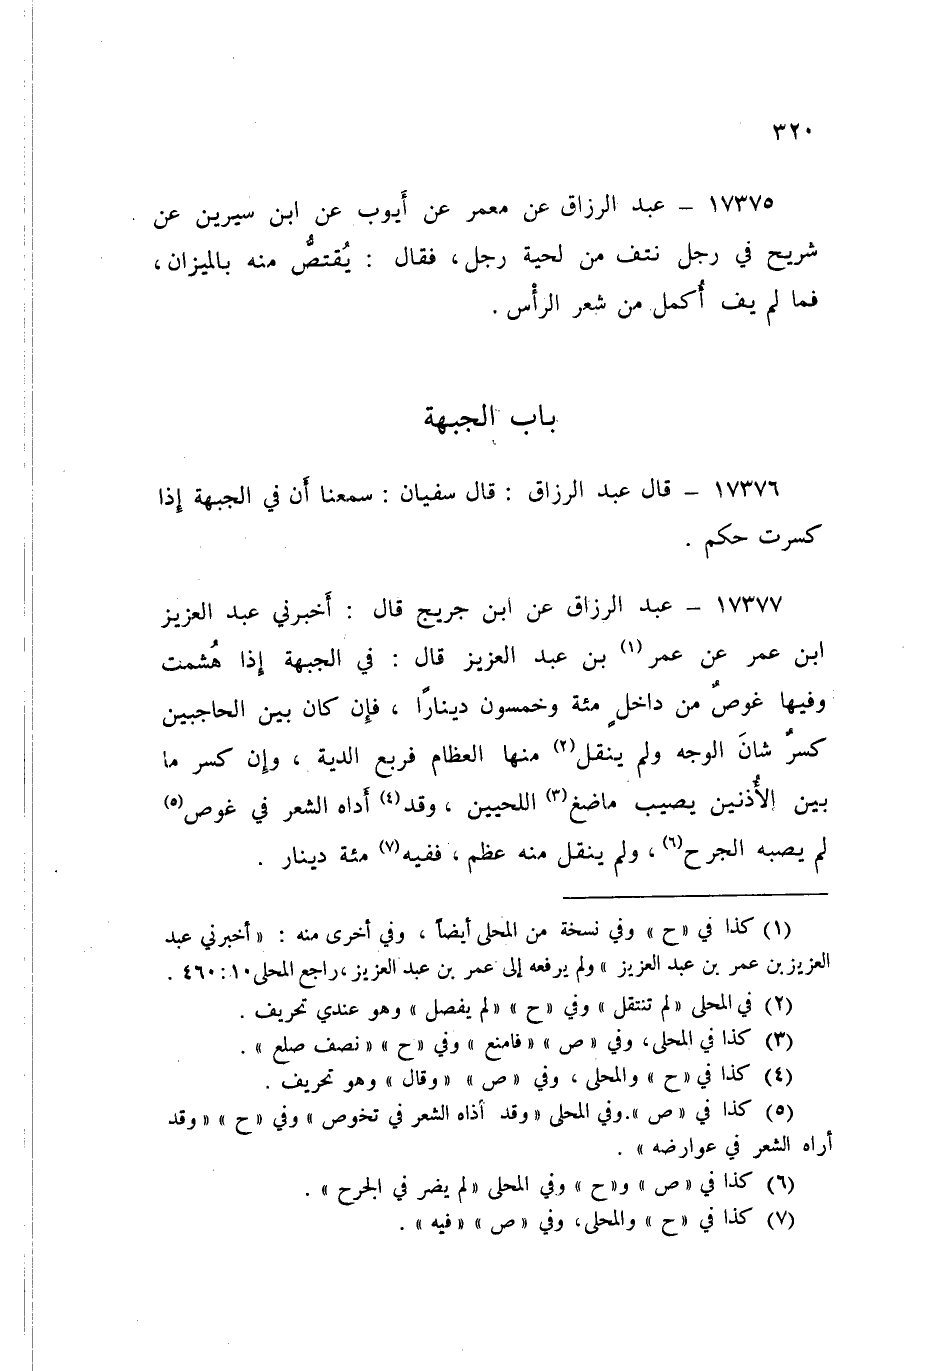 ٣٢٠
١٧٣٧٥ – عبد الرزاق عن معمر عن أَيوب عن ابن سيرين عن
شريح في رجل نتف من لحية رجل، فقال : يُقتصُّ منه بالميزان،
فما لم يف أُكمل من شعر الرأْس .
باب الجبهة
١٧٣٧٦ – قال عبد الرزاق : قال سفيان : سمعنا أَن في الجبهة إِذا
كسرت حكم .
١٧٣٧٧ – عبد الرزاق عن ابن جريج قال : أَخبرني عبد العزيز
ابن عمر عن عمر(١) بن عبد العزيز قال : في الجبهة إِذا هُشمت
وفيها غوصٌ من داخلٍ مئة وخمسون دينارًا ، فإِن كان بين الحاجبين
كسرٌ شانَ الوجه ولم ينقل(٢) منها العظام فربع الدية ، وإِن كسر ما
بين الأُذنين يصيب ماضغ(٣) اللحيين ، وقد(٤) أَداه الشعر في غوص(٥)
لم يصبه الجرح(٦)، ولم ينقل منه عظم، ففيه(٧) مئة دينار .
(١) كذا في «ح» وفي نسخة من المحلى أيضاً ، وفي أخرى منه : «أخبرني عبد
العزيز بن عمر بن عبد العزيز» ولم يرفعه إلى عمر بن عبد العزيز، راجع المحلى ١٠:٤٦٠ .
(٢) في المحلى «لم تنتقل» وفي «ح» «لم يفصل» وهو عندي تحريف .
(٣) كذا في المحلى، وفي «ص» «فامنع» وفي «ح» «نصف صلع» .
(٤) كذا في «ح» والمحلى ، وفي «ص» «وقال» وهو تحريف .
(٥) كذا في «ص».وفي المحلى «وقد أذاه الشعر في تخوص» وفي «ح» «وقد
أراه الشعر في عوارضه» .
(٦) كذا في «ص» و«ح» وفي المحلى «لم يضر في الجرح» .
(٧) كذا في «ح» والمحلى، وفي «ص» «فيه» .